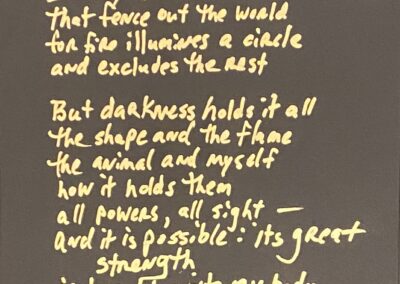 that fence out the world
for fire illumines a circle
and excludes the rest
But darkness holds it all
the shape and the flame
the animal and myself
how it holds them
all powers, all sight —
and it is possible: its great
strength